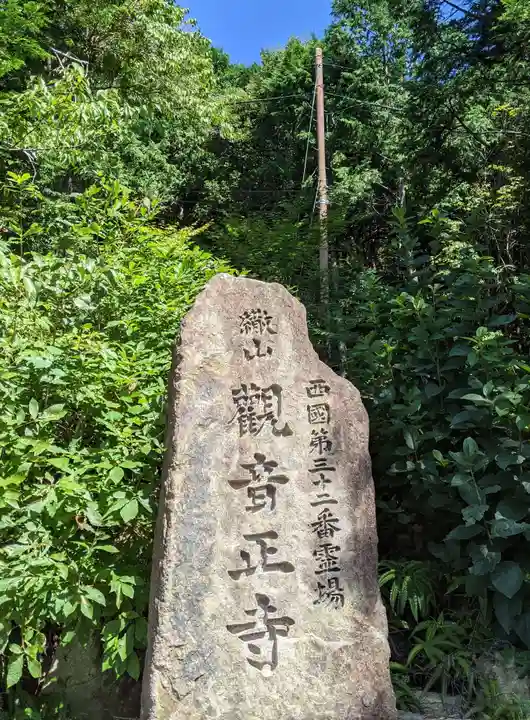 西國第三十二番霊場
繖山
觀音正寺